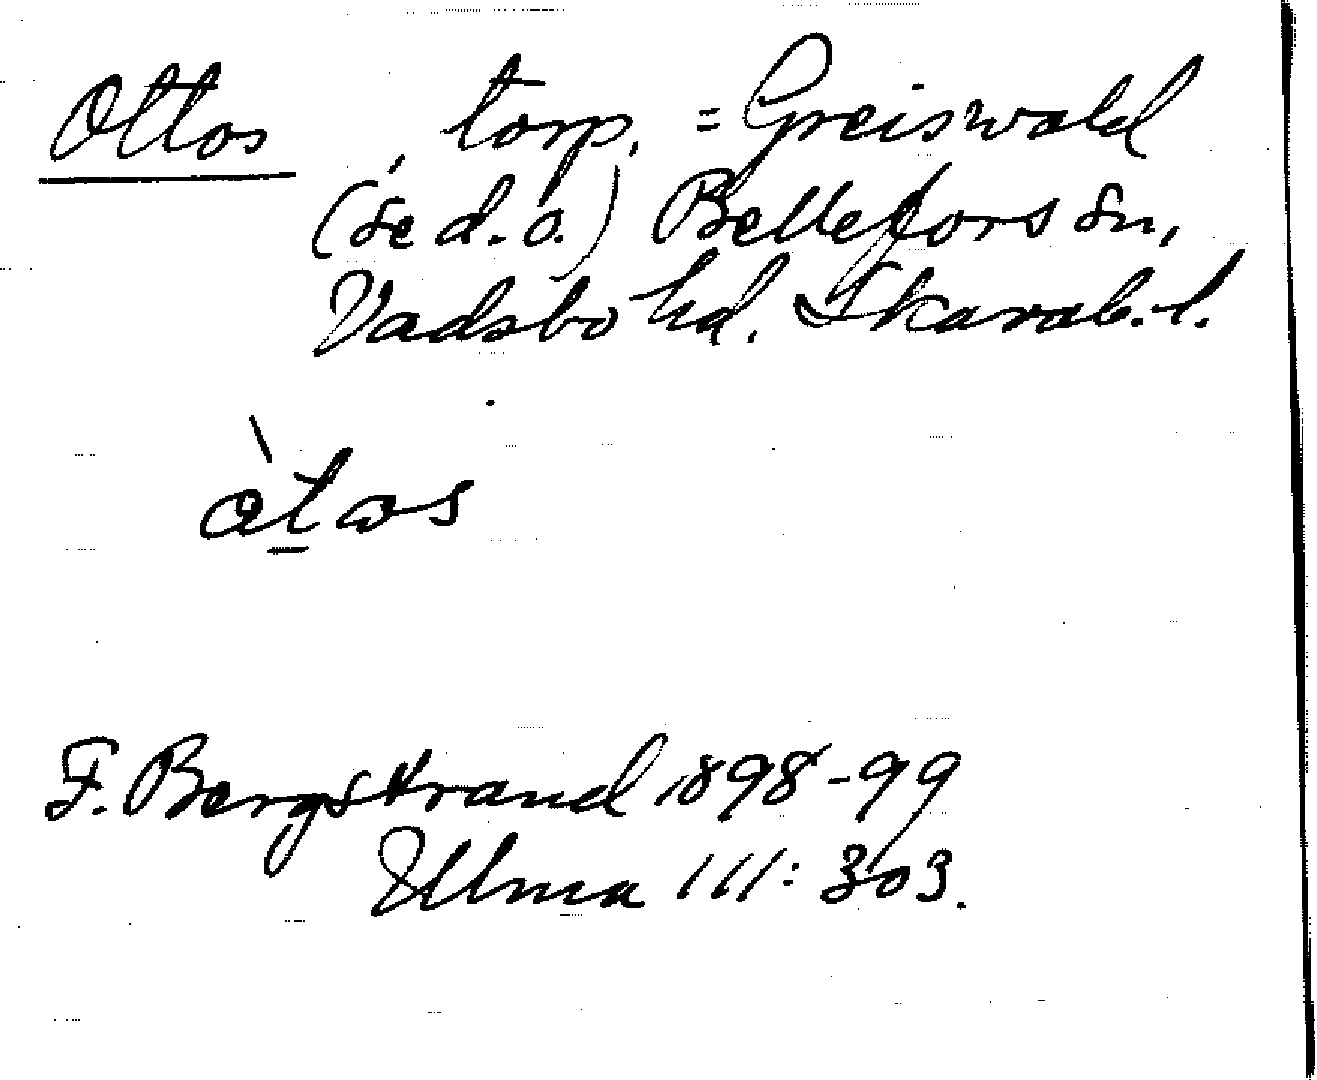 Ottos, torp, = Greiswald
(se d. o.) Bellefors sn,
Vadsbo hd. Skarab. l.
òt̲as
F. Bergstrand 1898-99
Ulma 111: 303.